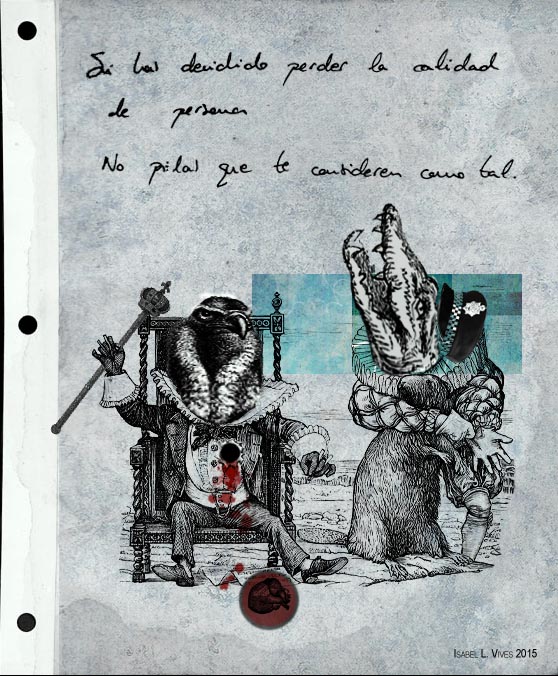 Si has decidido perder la calidad
de persona
No pidas que te consideren como tal.
Isabel L. Vives 2015